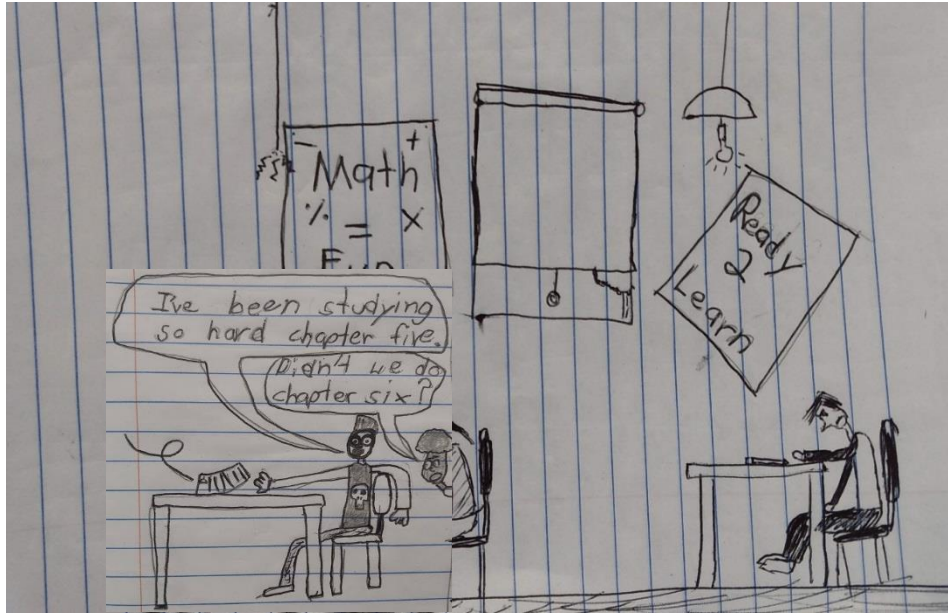 - +
Math
% = x
Fun
Ready
2
Learn
I've been studying
so hard chapter five.
Didn't we do
chapter six?